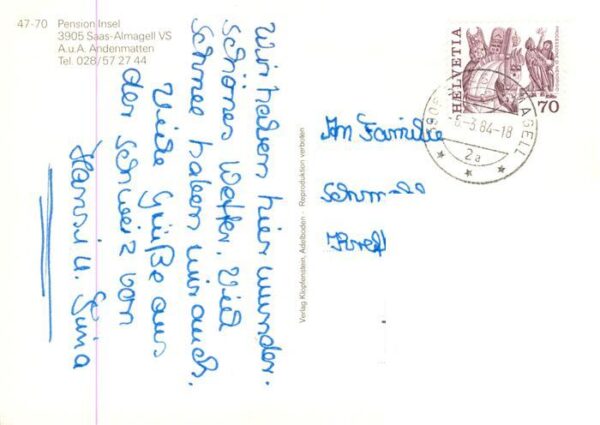 47-70 Pension Insel
3905 Saas-Almagell VS
A.u.A. Andenmatten
Tel. 028/57 27 44
Wir haben hier wunder-
schönes Wetter. Viel
Schnee haben wir auch.
Viele Grüße aus
der Schweiz von
Hansi u.
Verlag Klopfenstein, Adelboden - Reproduktion verboten
HELVETIA
70
AGELL
-6-3.84-18
2a
An Familie